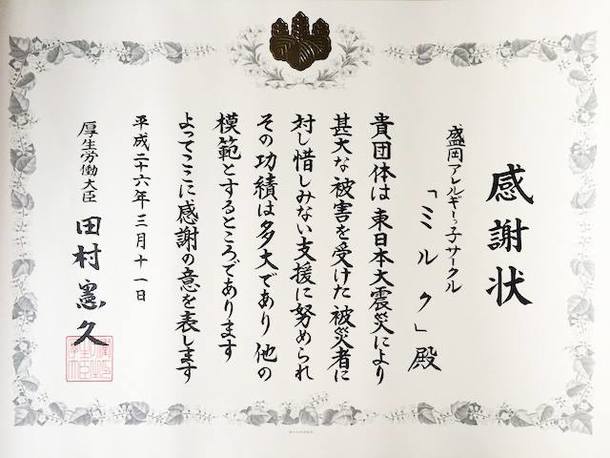 感謝状
盛岡アレルギーっ子サークル
「ミルク」殿
貴団体は東日本大震災により
甚大な被害を受けた被災者に
対し惜しみない支援に努められ
その功績は多大であり他の
模範とするところであります
よってここに感謝の意を表します
平成二十六年三月十一日
厚生労働大臣 田村憲久